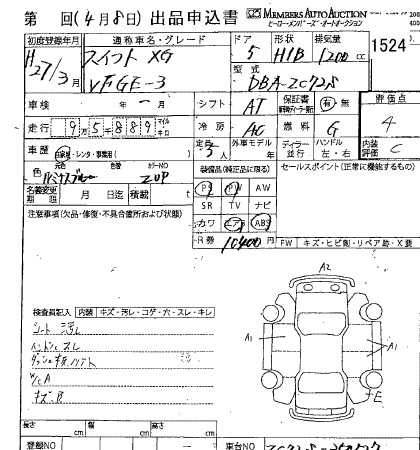 第 回(4月8日)出品申込書 MEMBERS AUTO AUCTION
ヒーローメンバーズ・オートオークション
初度登録年月 通称車名・グレード ドア 形状 排気量
H27/3月 スイフト XG 5 H/B 1200cc 1524
VFGE-3 型式 DBA-ZC72S
車検 年 月 シフト AT 保証書 有・無 評価点
走行 95889 マイル キロ 冷房 AC 燃料 G 4
車歴 自家用・レンタ・事業用( ) 定員 5人 外車モデル 年 ディーラー 並行 ハンドル 左・右 内装評価 C
色 元色 色替 カラーNO 装備品(純正品に限る) セールスポイント(正常に機能するもの)
ZUP PS PW AW
名義変更期限 月 日迄 積載 SR TV ナビ
注意事項(欠品・修復・不具合箇所および状態) カワ エアB ABS
R券 10400円 FW キズ・ヒビ割・リペア跡・X要
A2
検査員記入 内装 キズ・汚レ・コゲ・穴・スレ・キレ
シート 汚レ
ハンドル スレ
W/C A
キズ、B
A1 A1
E
長さ cm 幅 cm 高さ cm
登録NO 車台NO